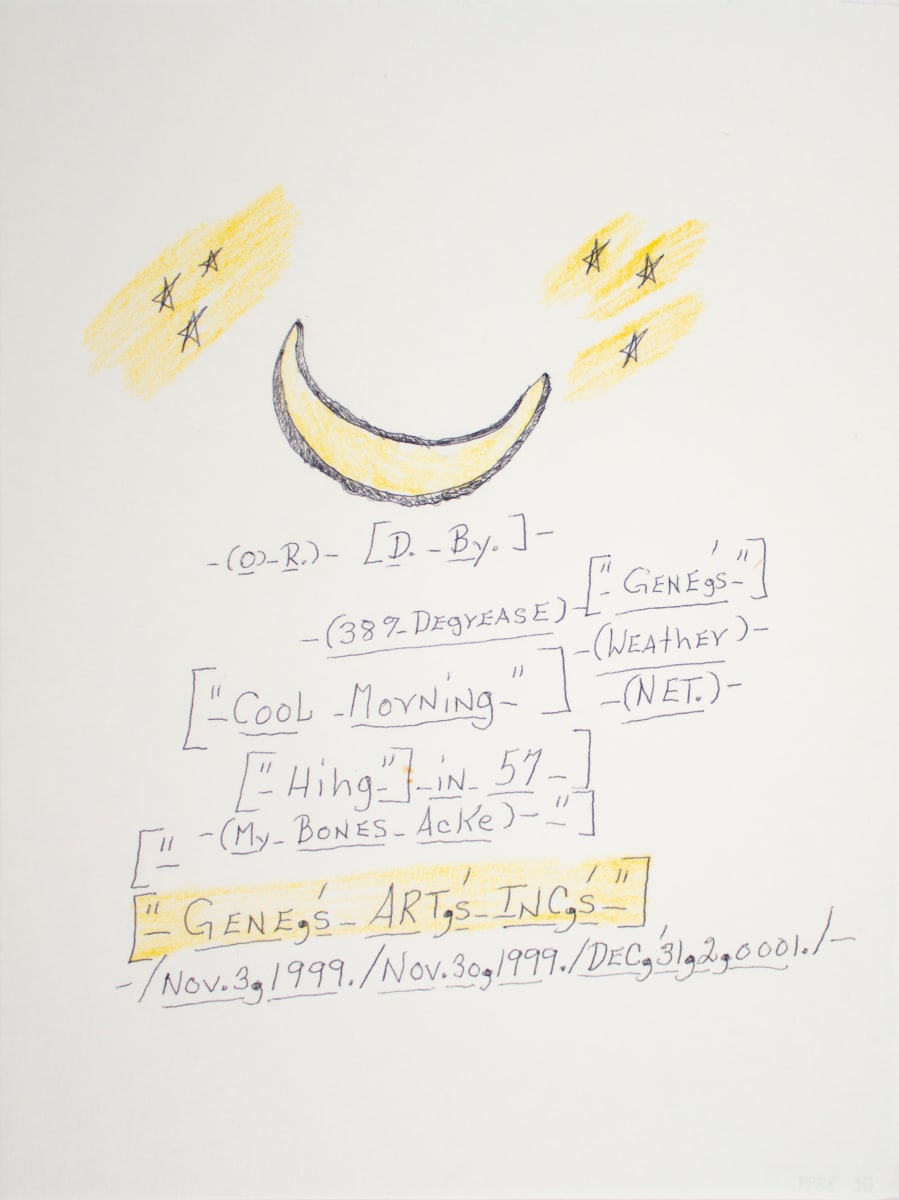 -(O)-R.)- [D. - By. ]-
-(38%-DEgrEASE)-["- GENEg's-"]
["-COOL -MOrNiNg-"] -(WEAthEr)-
-(NET.)-
["- Hihg-"]-iN- 57-]
["- -(My- BONES- AcKe)- -"]
["- GENEg's- ARTg's- INCg's-"]
-/Nov.3g1999./Nov.30g1999./DECg'31g2g0001./-